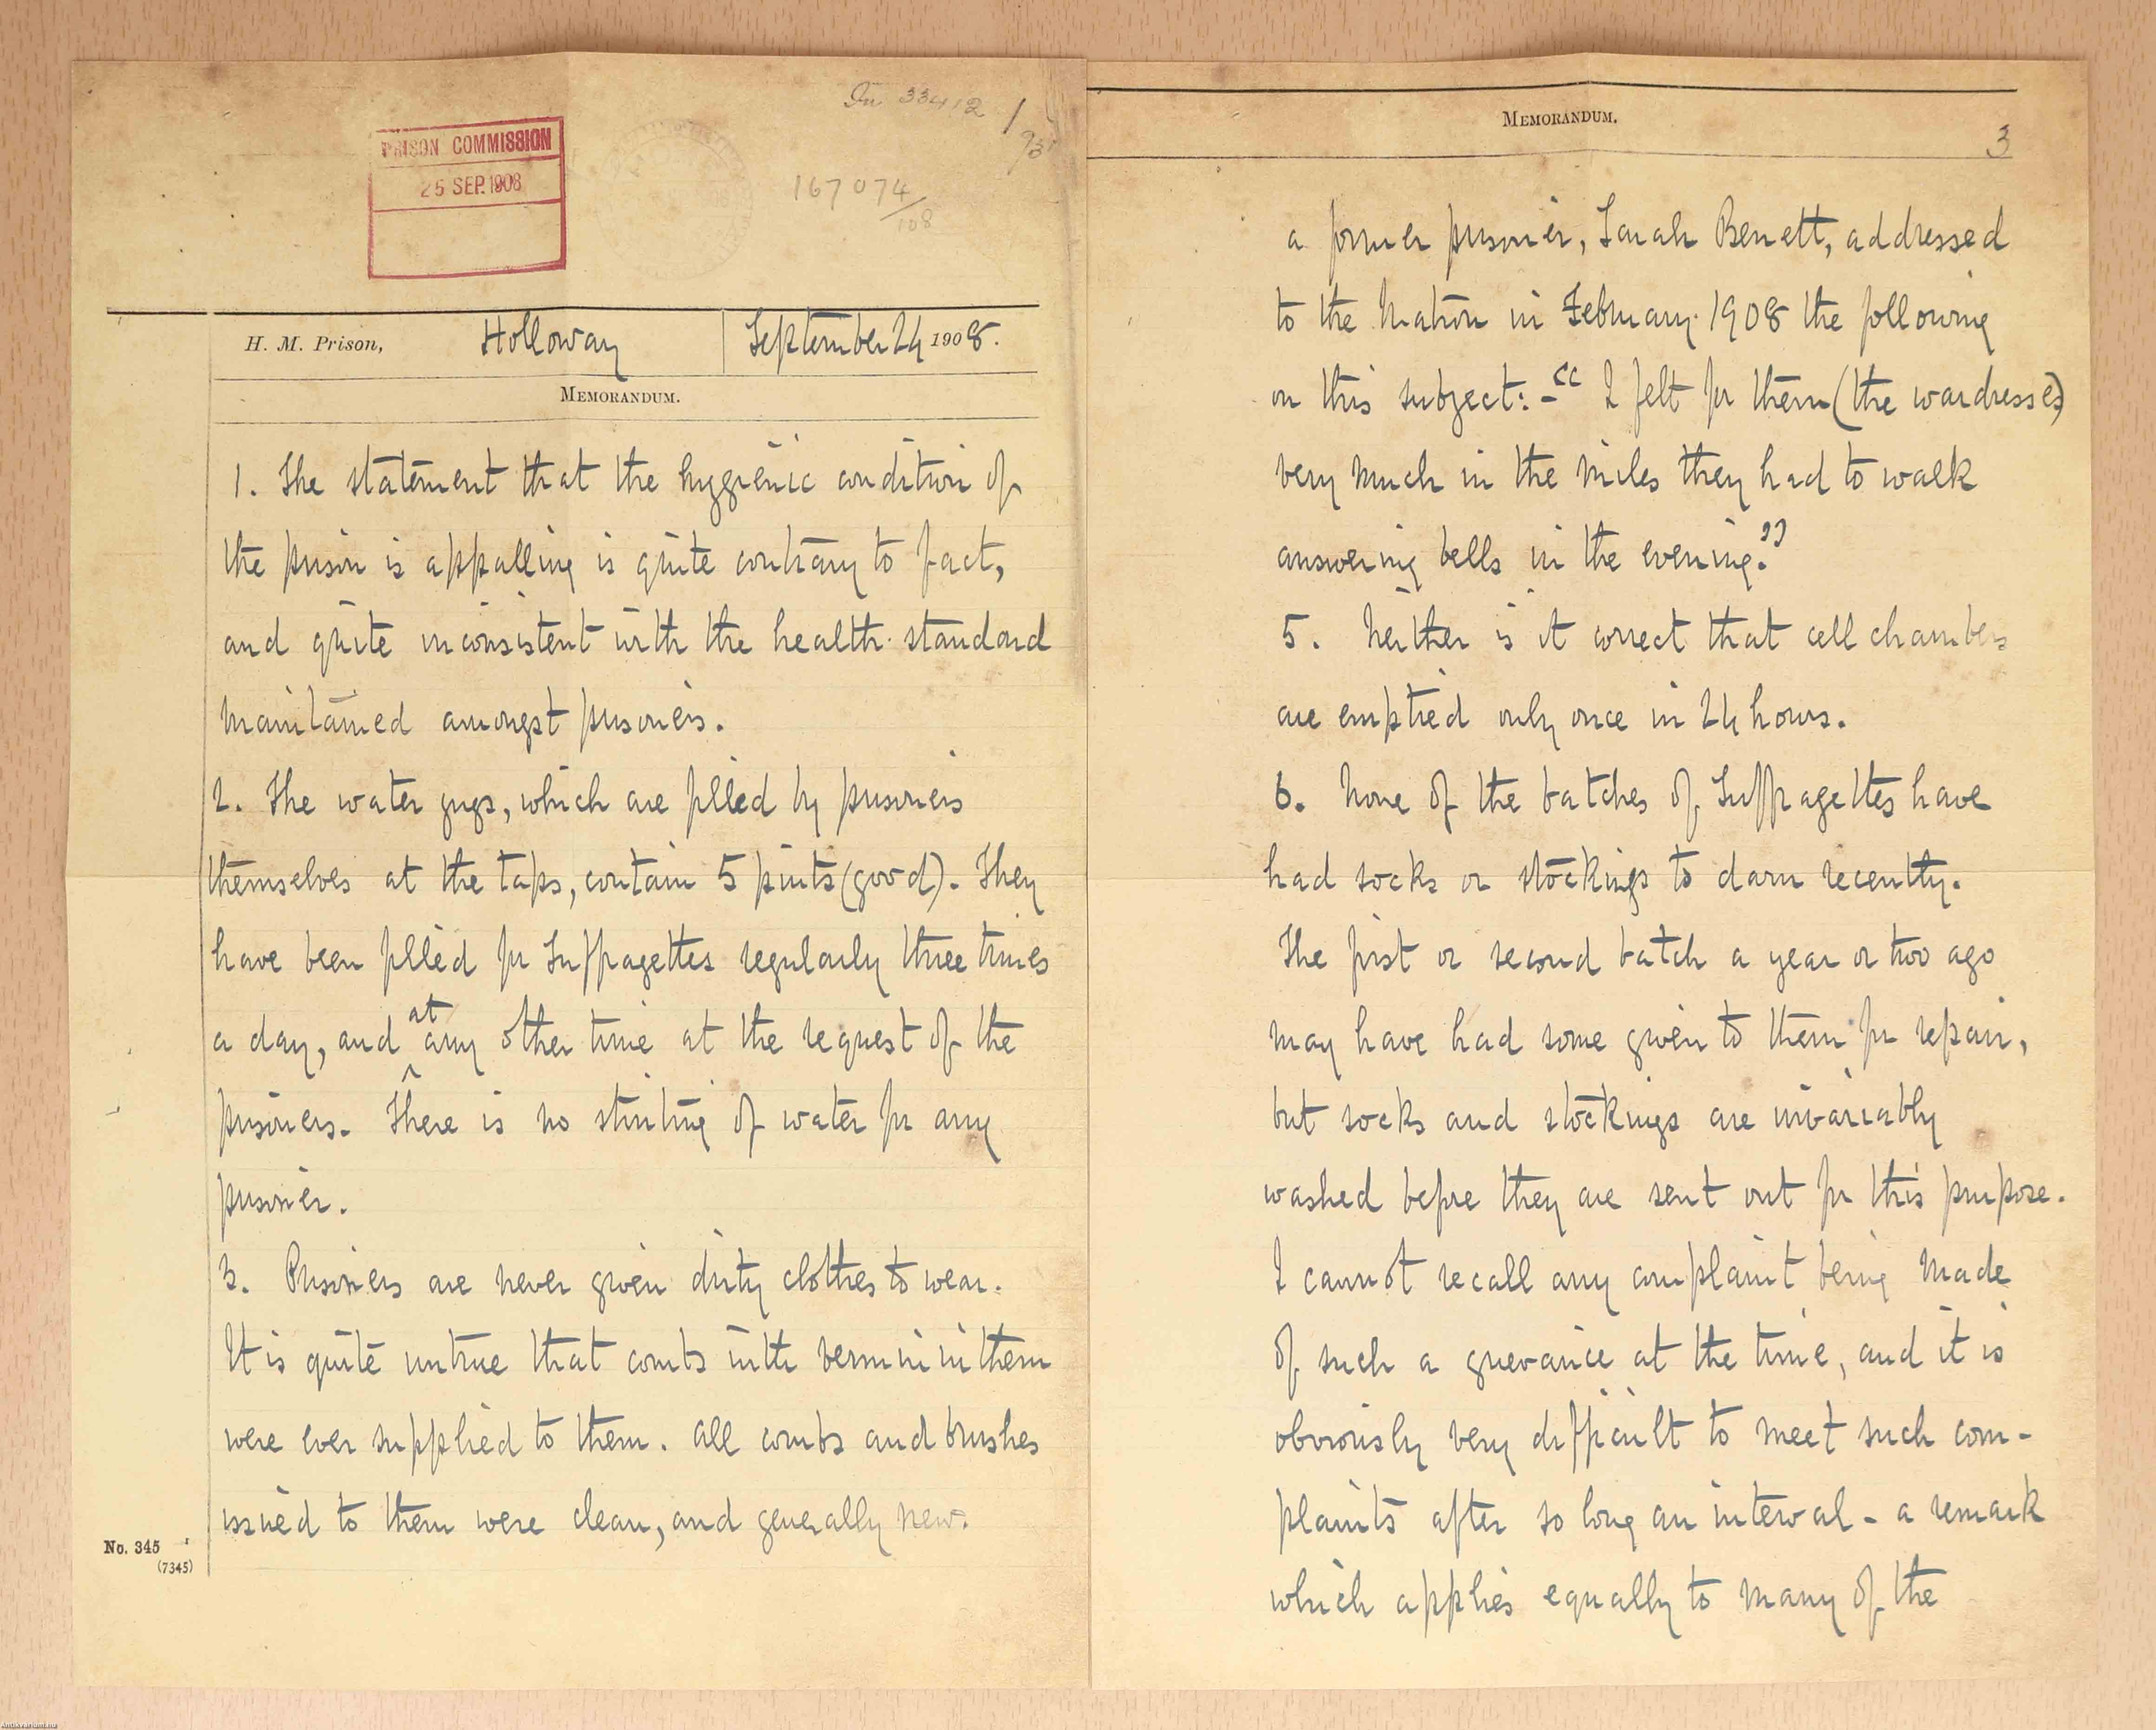 In 33412
167074/108
PRISON COMMISSION
25 SEP. 1908
H. M. Prison, Holloway September 24 1908.
MEMORANDUM.
1. The statement that the hygienic condition of
the prison is appalling is quite contrary to fact,
and quite inconsistent with the health standard
maintained amongst prisoners.
2. The water jugs, which are filled by prisoners
themselves at the taps, contain 5 pints (good). They
have been filled for Suffragettes regularly three times
a day, and at any other time at the request of the
prisoners. There is no stinting of water for any
prisoner.
3. Prisoners are never given dirty clothes to wear.
It is quite untrue that combs with vermin in them
were ever supplied to them. All combs and brushes
issued to them were clean, and generally new.
No. 345
(7345)
MEMORANDUM.
3
a former prisoner, Sarah Benett, addressed
to the Matron in February 1908 the following
on this subject:- "I felt for them (the wardresses)
very much in the miles they had to walk
answering bells in the evening."
5. Neither is it correct that cell chambers
are emptied only once in 24 hours.
6. None of the batches of Suffragettes have
had socks or stockings to darn recently.
The first or second batch a year or two ago
may have had some given to them for repair,
but socks and stockings are invariably
washed before they are sent out for this purpose.
I cannot recall any complaint being made
of such a grievance at the time, and it is
obviously very difficult to meet such com-
plaints after so long an interval - a remark
which applies equally to many of the
Antikvarium.hu